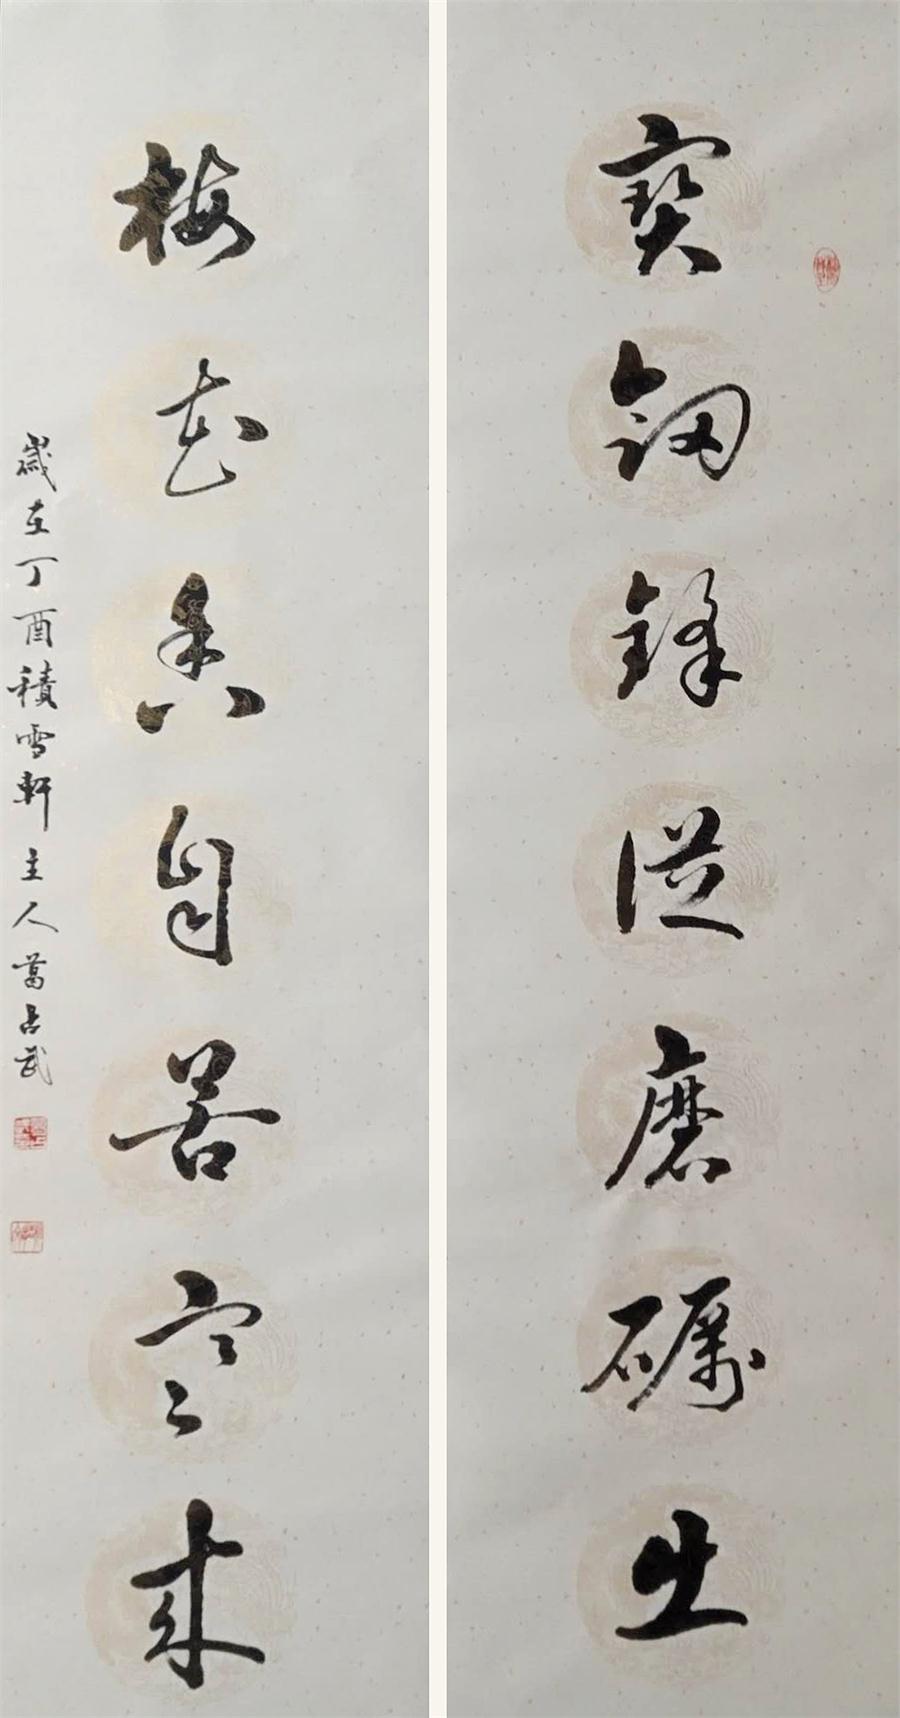 寶劒鋒從磨礪出
梅花香自苦寒来
歲在丁酉積雪軒主人葛占武